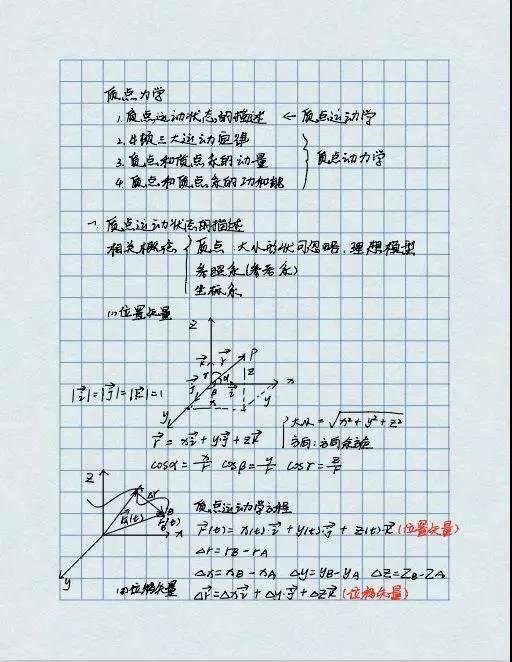 质点力学
1. 质点运动状态的描述 ← 质点运动学
2. 牛顿三大运动定律
3. 质点和质点系的动量
质点动力学
4. 质点和质点系的功和能
一、质点运动状态的描述
相关概念 { 质点：大小形状可忽略，理想模型
参照系(参考系)
坐标系
(1) 位置矢量
z
k⃗ r⃗ P
γ α z
j⃗ β i⃗ x
x y
y
|i⃗|=|j⃗|=|k⃗|=1
大小 = √x²+y²+z²
r⃗ = xi⃗ + yj⃗ + zk⃗
方向：方向余弦
cosα = x/r cosβ = y/r cosγ = z/r
z A Δr B
r⃗A(t) r⃗B(t) x
y
质点运动学方程
r⃗(t) = x(t)·i⃗ + y(t)·j⃗ + z(t)·k⃗ (位置矢量)
Δr = rB - rA
Δx = xB - xA Δy = yB - yA Δz = zB - zA
(2) 位移矢量
Δr⃗ = Δxi⃗ + Δy·j⃗ + Δzk⃗ (位移矢量)